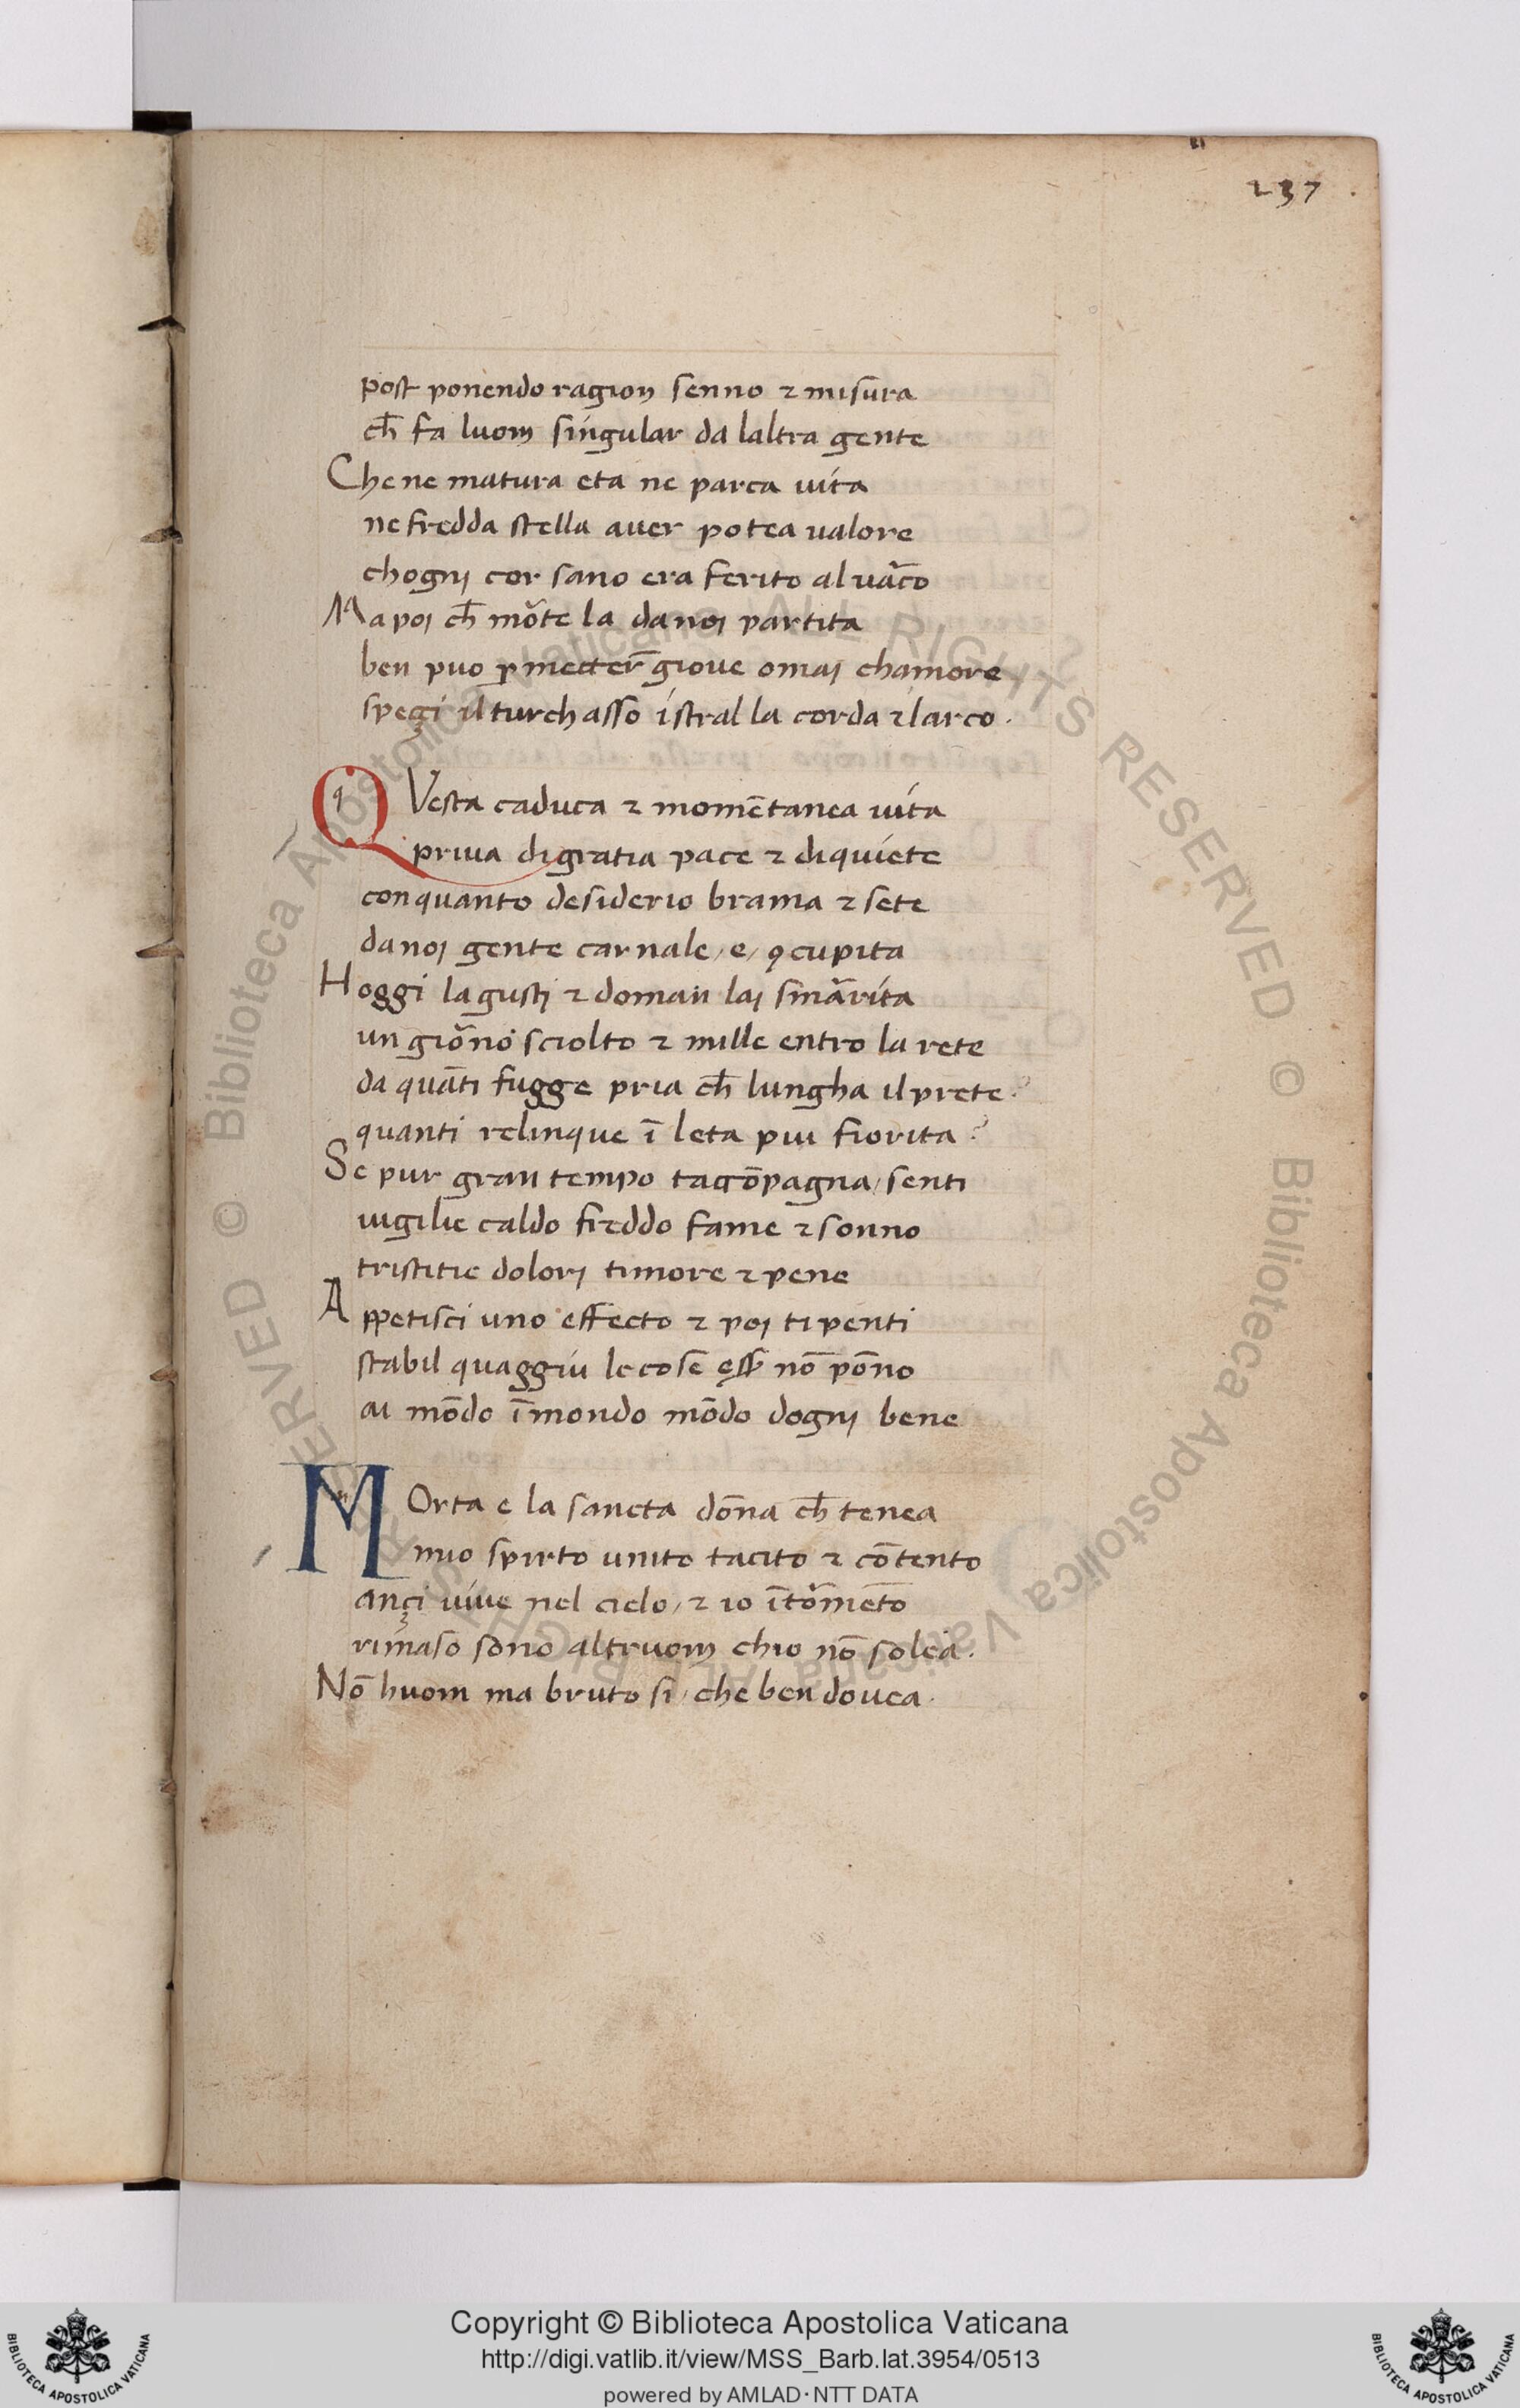 237
post ponendo ragion senno ⁊ misura
ch̄ fa luom singular da laltra gente
Che ne matura eta ne parca uita
ne fredda stella auer potea ualore
chogni cor sano era ferito al uaco
Ma poi ch̄ mo̅te la da noi partita
ben puo ꝓmetter̄ gioue omai chamore
speçi il turchasso i stral la corda ⁊ larco .
QVesta caduca ⁊ mome̅tanea uita
priua di gratia pace ⁊ di quiete
con quanto desiderio brama ⁊ sete
da noi gente carnale / e / ꝯcupita
Hoggi la gusti ⁊ doman lai sma̅rita
un gio̅no sciolto ⁊ mille entro la rete
da qua̅ti fugge pria ch̄ lungha il prete ?
quanti relinque i̅ leta piu fiorita ?
Se pur gran tempo taco̅pagna / senti
uigilie caldo freddo fame ⁊ sonno
tristitie dolori timore ⁊ pene
Appetisci uno effecto ⁊ poi ti penti
stabil quaggiu le cose no̅ po̅no
ai mo̅do i̅mondo mo̅do dogni bene
MOrta e la sancta do̅na ch̄ tenea
mio spirto unito tacito ⁊ co̅tento
ançi uiue nel cielo / ⁊ io i̅to̅me̅to
rimaso sono altruom chio no̅ solea .
No̅ huom ma bruto si / che ben douea .
Copyright © Biblioteca Apostolica Vaticana
http://digi.vatlib.it/view/MSS_Barb.lat.3954/0513
powered by AMLAD · NTT DATA
BIBLIOTECA APOSTOLICA VATICANA
BIBLIOTECA APOSTOLICA VATICANA